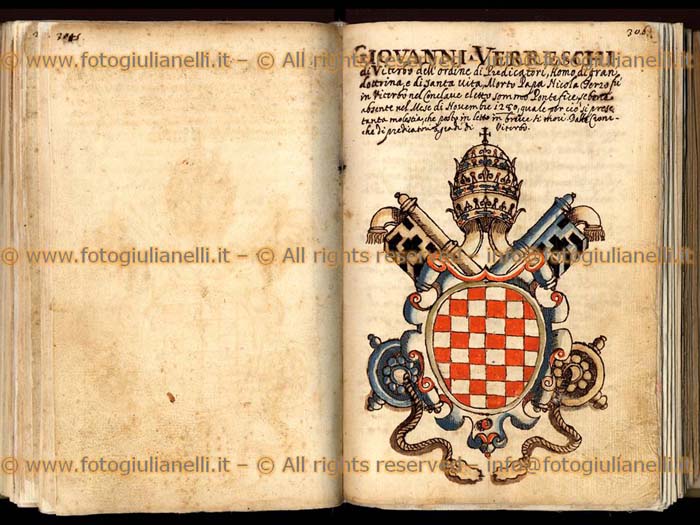 306
GIOVANNI VERRESCHI
di Viterbo dell'ordine di Predicatori, Homo di gran
dottrina, e di Santa vita, Morto Papa Nicola Terzo fu
in Viterbo nel Conclave eletto sommo Pontefice, se bene
absente nel Mese di Novembre 1280, quale per ciò si prese
tanta molestia, che posto in letto in breve si morì. Dalle Croni-
che di predicatori di Viterbo.
www.fotogiulianelli.it – © All rights reserved – info@fotogiulianelli.it
www.fotogiulianelli.it – © All rights reserved – info@fotogiulianelli.it
www.fotogiulianelli.it – © All rights reserved – info@fotogiulianelli.it